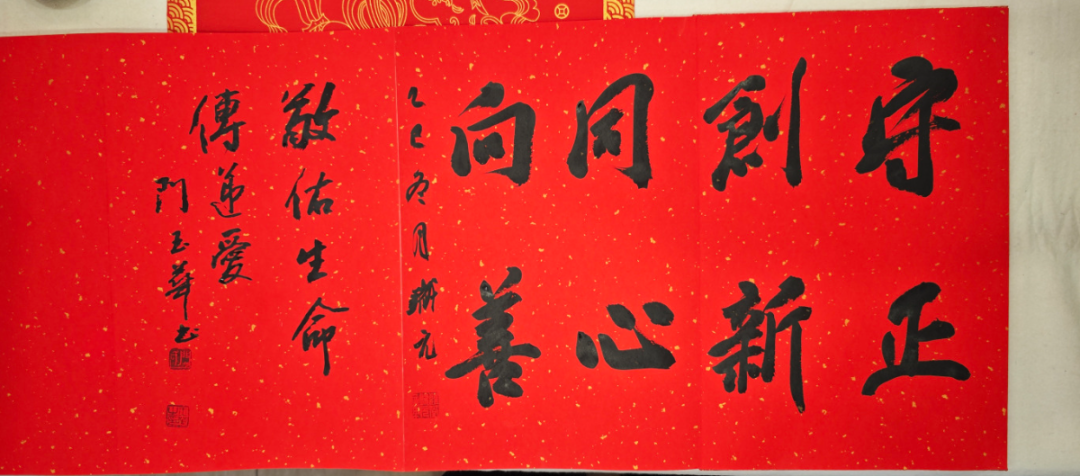 守正
創新
同心
向善
乙巳冬月
元
敬佑生命
傳遞愛
門玉華书